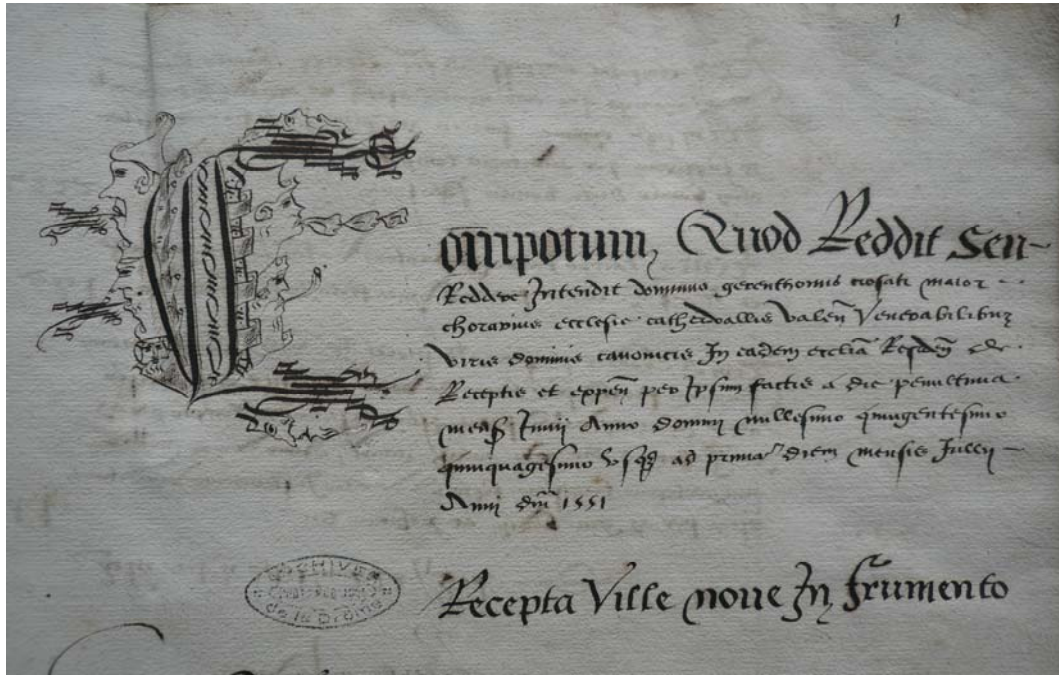 1
Compotum, Quod Reddit seu
Reddere Intendit dominus gerenthonus crosati maior
chorarius ecclesie cathedrallis valen̄ Venerabilibus
viris dominis canonicis In eadem eccliā Resideñ de
Receptis et expeñ per Ipsum factis a die penultima
mensis Junii Anno domini millesimo quingentesimo
quinquagesimo vsq̨ ad primā diem mensis Jullii
Anni dn̄i 1551
ARCHIVES
de la Drôme
Recepta Ville noue In frumento